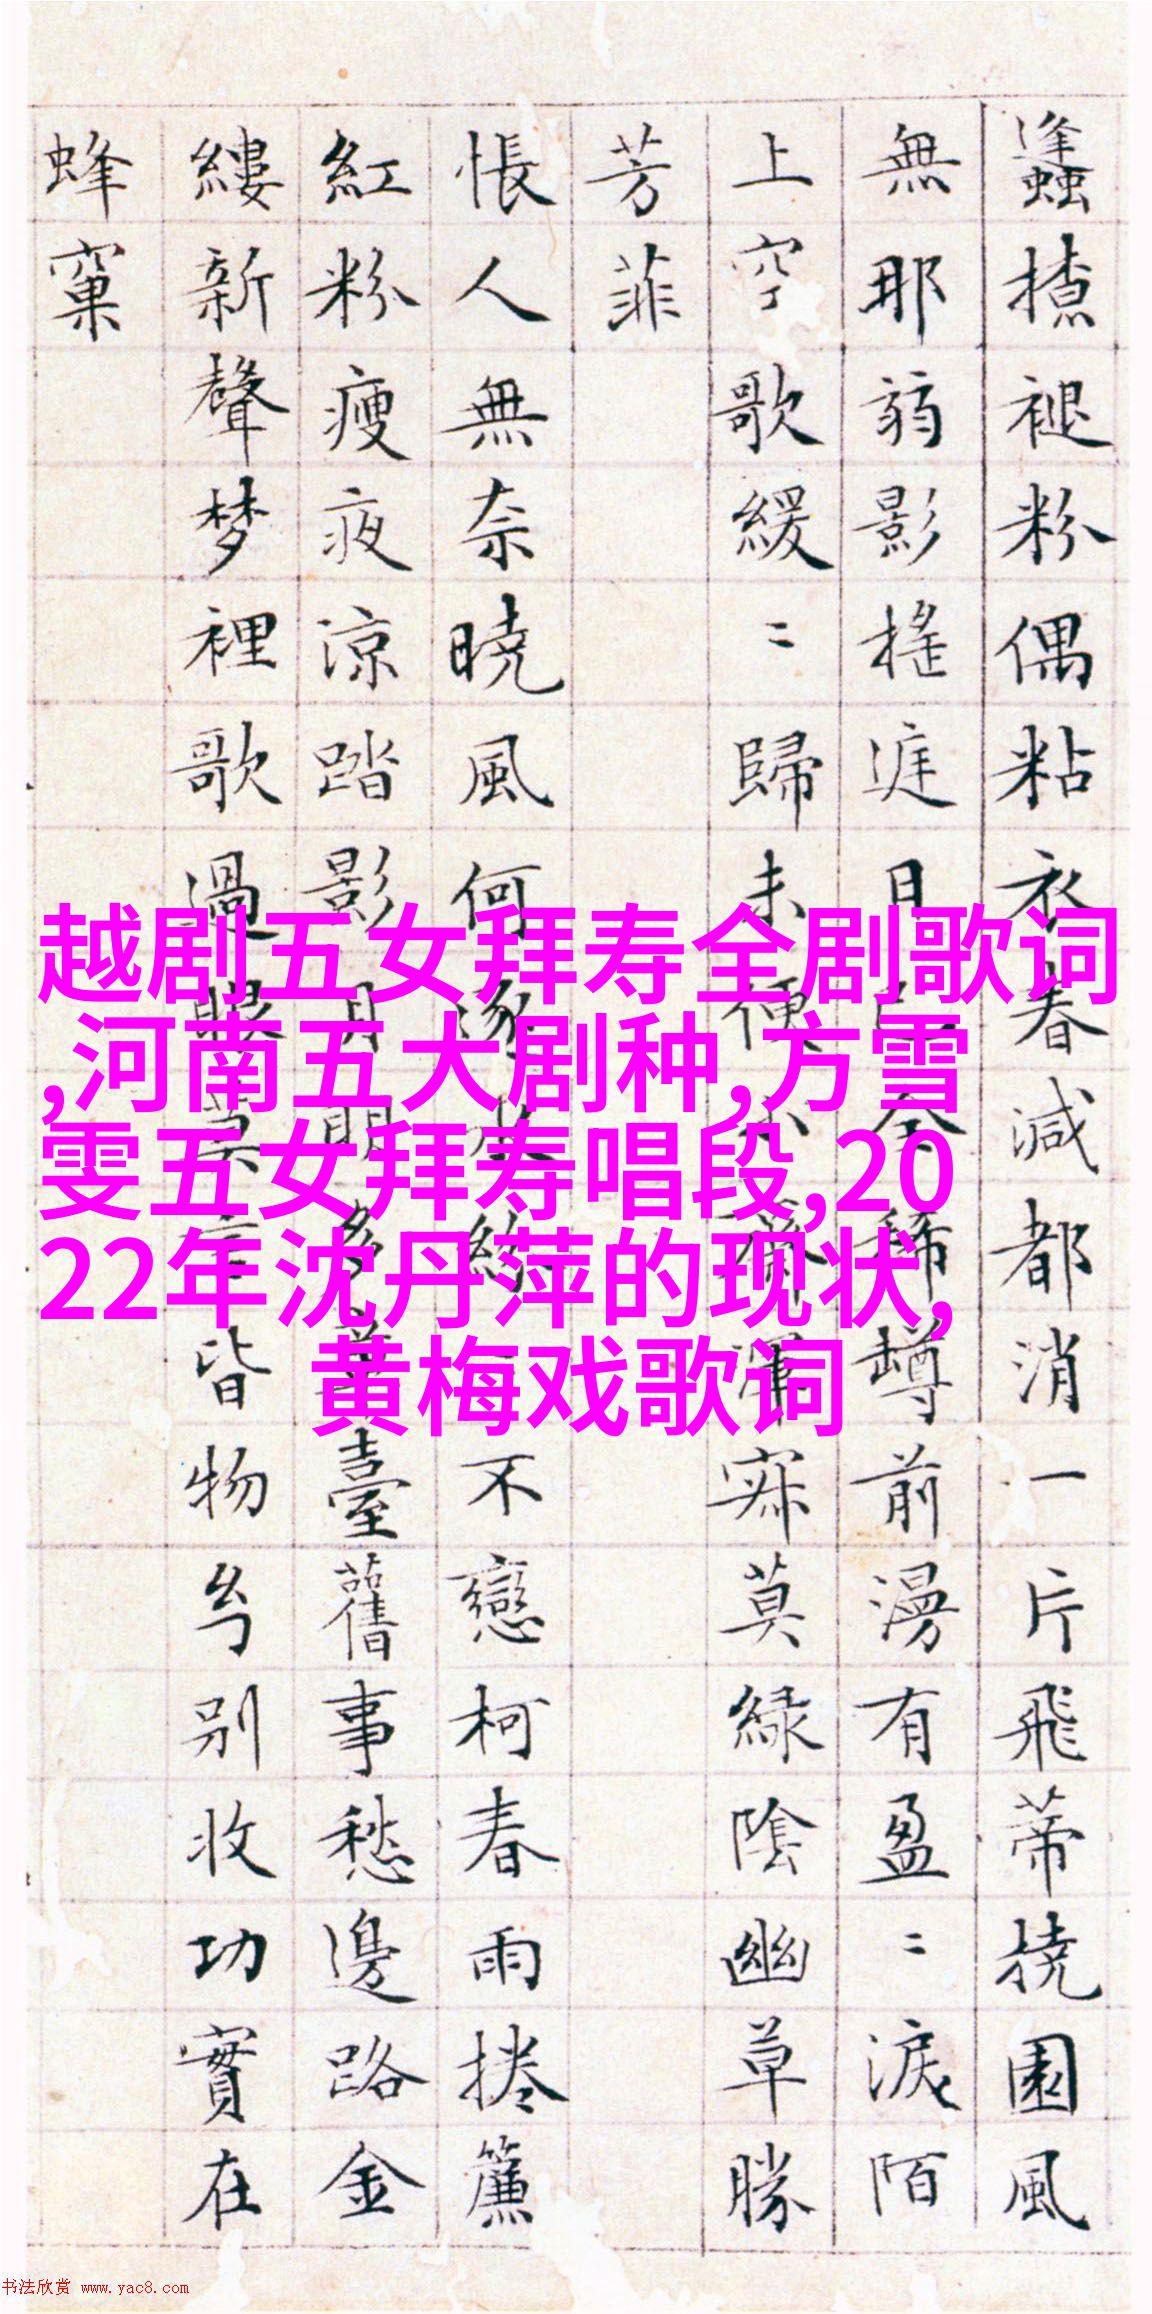 蠭褪粉偶粘衣春減都消一片飛蒂撓園風
無那弱影搖庭日全稀罇前漫有盈〻淚陌
上空歌緩〻歸未便不渾寂莫綠陰幽草勝
芳菲
悵人無奈曉風何逐水紛不戀柯春雨捲簾
紅粉瘦夜涼踏影月明多臺舊事愁邊路金
縷新聲梦裡歌過眼莫言皆物别收功實在
蜂窠
越剧五女拜寿全剧歌词
,河南五大剧种,方雪
雯五女拜寿唱段,20
22年沈丹萍的现状,
黄梅戏歌词
书法欣赏 www.yac8.com